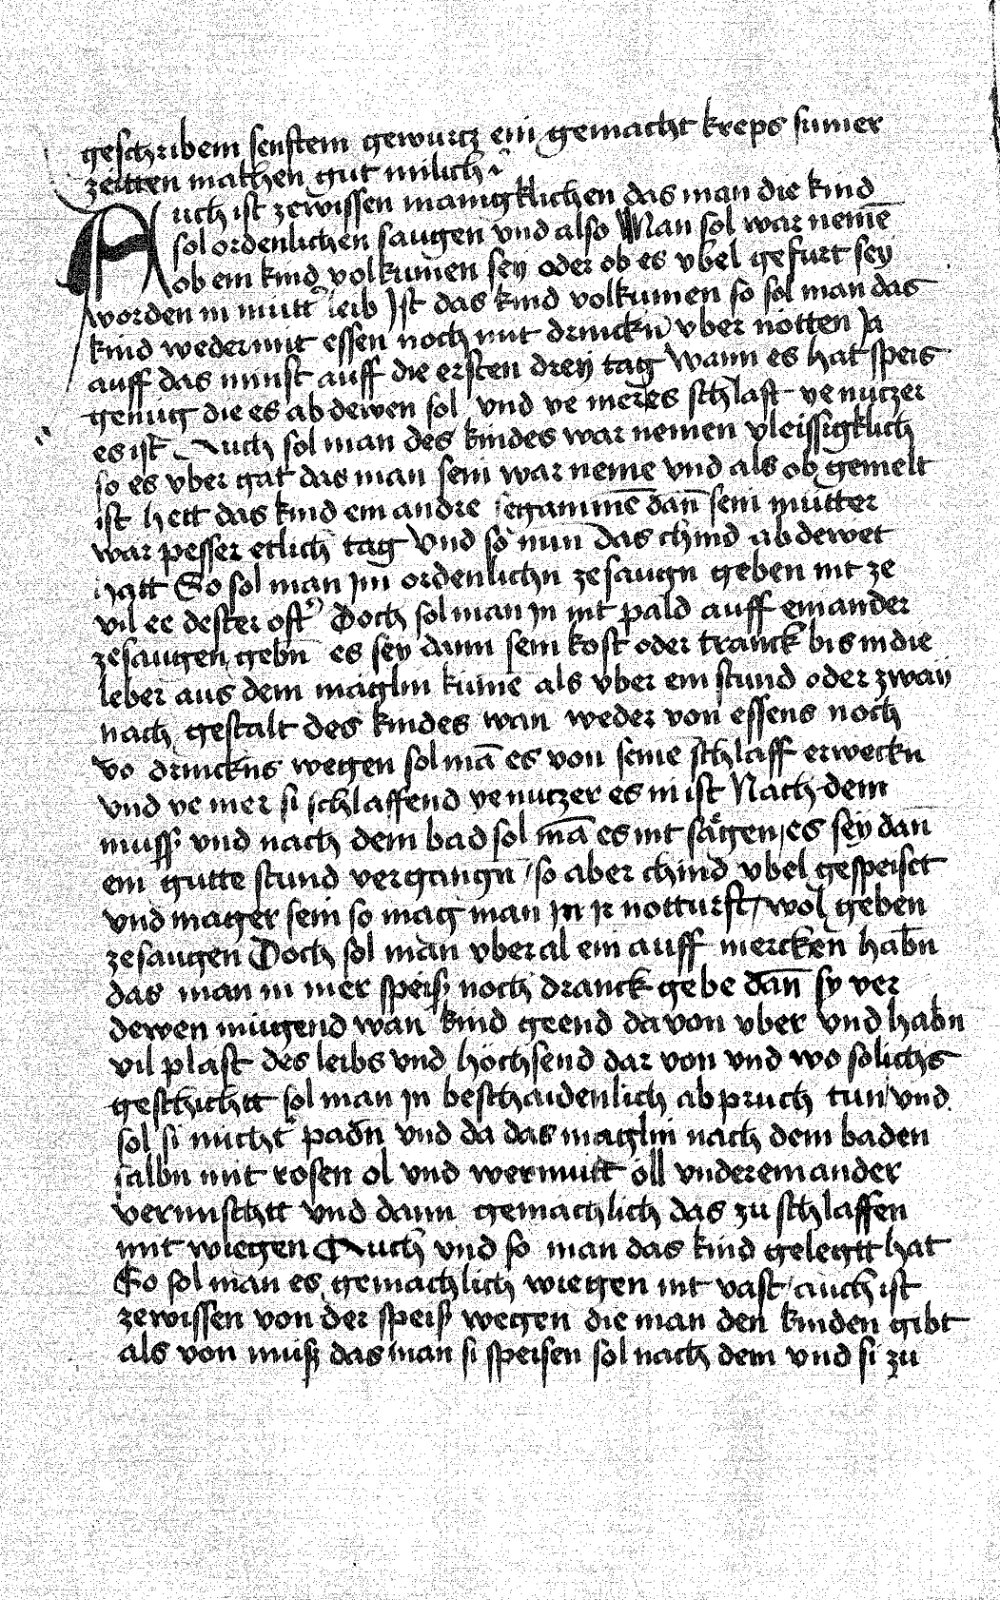 geschribem senftem gewurcz ein gemacht kreps sumer
zeitten machen gut milich
Auch ist zewissen manigklichen das man die kind
sol ordenlichen saugen vnd also Man sol war nemē
ob ein kind volkumen sey oder ob es vbel gefurt sey
worden in mutt' leib Ist das kind volkumen so sol man das
kind weder mit essen noch mit drinckn̄ vber nötten Ja
auff das minst auff die ersten drey tag Wann es hat speis
genug die es ab dewen sol vnd ye meres schlaft ye nuczer
es ist Auch sol man des kindes war nemen vleissigklich
so es vber gat das man sein war neme vnd als ob gemelt
ist hett das kind ein andre segammē dan̄ sein mutter
war pesser etlich tag Vnd so nun das chind abdewet
hatt So sol man im ordenlichn zesaugn geben nit ze
vil ee dester oft' Doch sol man in nit pald auff einander
zesaugen gebn̄ es sey dann sein kost oder tranck bis in die
leber aus dem maglin kume als vber ein stund oder zwaij
nach gestalt des kindes wan weder von essens noch
vo drinckns wegen sol mā es von seine schlaff erweckn
vnd ye mer si schlaffend ye nuczer es in ist Nach dem
muss vnd nach dem bad sol mā es nit sägen es sey dan
ein gutte stund vergangn̄ so aber chind vbel gespeist
vnd mager sein so mag man in ir notturft wol geben
zesaugen Doch sol man vber al ein auff mercken habn
das man in mer speis noch dranck gebe dan̄ sy ver
dewen mugend wan kind geend da von vber vnd habn
vil plast des leibs vnd höchsend dar von vnd wo solichs
geschichtt sol man in beschaidenlich abpruch tun vnd
sol si nücht' padn̄ vnd da das maglin nach dem baden
salbn mit rosen ol vnd wermutt öll vnder einander
vermischtt vnd dann gemachlich das zu schlaffen
mit wiegen Auch vnd so man das kind gelegtt hat
So sol man es gemachlich wiegen nit vast auch ist
zewissen von der speis wegen die man den kinden gibt
als von mus das man si speisen sol nach dem vnd si zu